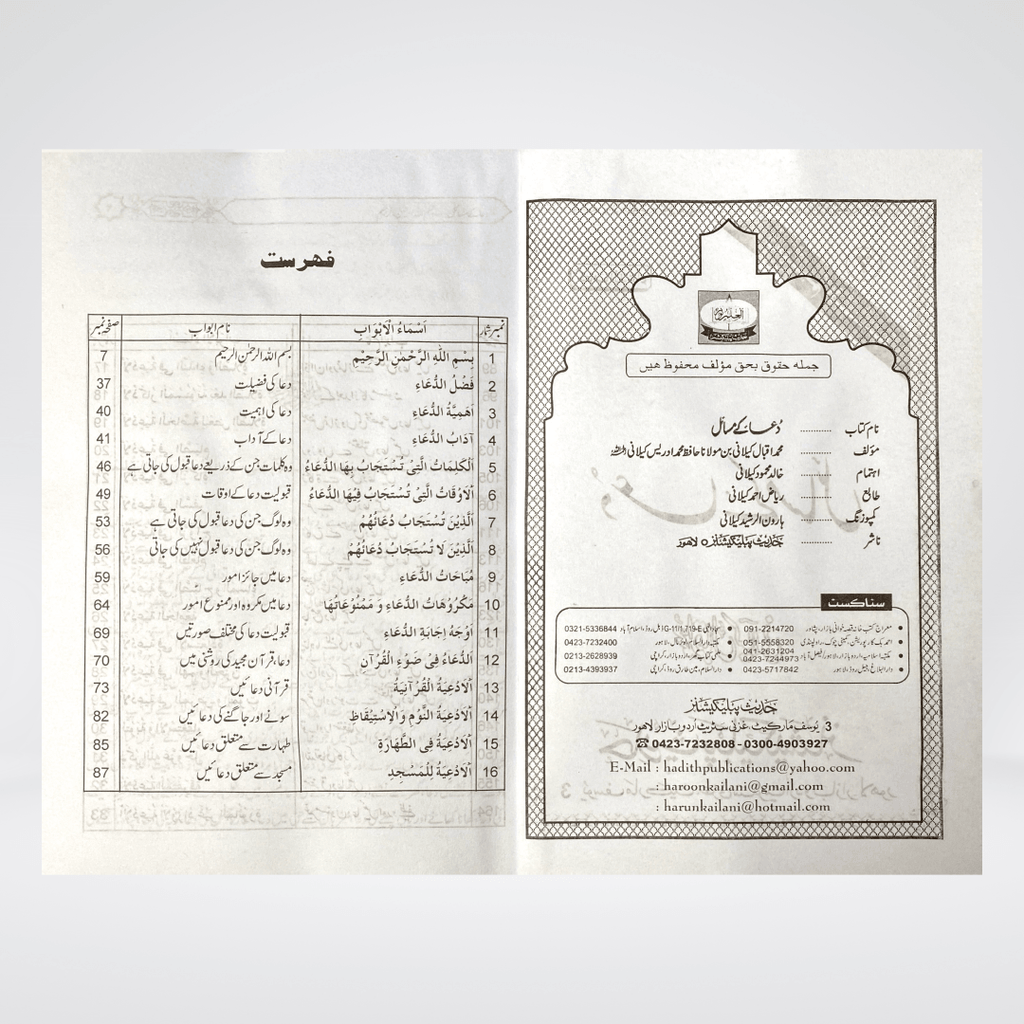 جملہ حقوق بحق مؤلف محفوظ ھیں
نام کتاب ......... دُعا کے مسائل
مؤلف ......... محمد اقبال کیلانی بن مولانا حافظ محمد ادریس کیلانی رحمہ اللہ
اہتمام ......... خالد محمود کیلانی
طابع ......... ریاض احمد کیلانی
کمپوزنگ ......... ہارون الرشید کیلانی
ناشر ......... حدیث پبلیکیشنز ○ لاھور
سٹاکسٹ
• معراج کتب خانہ قصہ خوانی بازار، پشاور 091-2214720
• احمد بک کارپوریشن، کمیٹی چوک، راولپنڈی 051-5558320
• مکتبہ اسلامیہ، اردو بازار، لاہور/فیصل آباد 041-2631204 0423-7244973
• دارالبلاغ، جیل روڈ، لاہور 0423-5717842
• G-11/1,719-E اسلام آباد 0321-5336844
• لاہور 0423-7232400
• علمی کتاب گھر، اردو بازار، کراچی 0213-2628939
• دارالسلام، مین طارق روڈ، کراچی 0213-4393937
حدیث پبلیکیشنز
3 یوسف مارکیٹ، غزنی سٹریٹ اُردو بازار لاھور
☎ 0423-7232808 - 0300-4903927
E-Mail : hadithpublications@yahoo.com
: haroonkailani@gmail.com
: harunkailani@hotmail.com
فہرست
نمبر شمار اَسْمَاءُ الْاَبْوَابِ نام ابواب صفحہ نمبر
1 بِسْمِ اللّٰهِ الرَّحْمٰنِ الرَّحِيْمِ بسم اللہ الرحمٰن الرحیم 7
2 فَضْلُ الدُّعَاءِ دعا کی فضیلت 37
3 اَهَمِيَّةُ الدُّعَاءِ دعا کی اہمیت 40
4 آدَابُ الدُّعَاءِ دعا کے آداب 41
5 اَلْكَلِمَاتُ الَّتِيْ تُسْتَجَابُ بِهَا الدُّعَاءُ وہ کلمات جن کے ذریعے دعا قبول کی جاتی ہے 46
6 اَلْاَوْقَاتُ الَّتِيْ تُسْتَجَابُ فِيْهَا الدُّعَاءُ قبولیت دعا کے اوقات 49
7 اَلَّذِيْنَ تُسْتَجَابُ دُعَائُهُمْ وہ لوگ جن کی دعا قبول کی جاتی ہے 53
8 اَلَّذِيْنَ لَا تُسْتَجَابُ دُعَائُهُمْ وہ لوگ جن کی دعا قبول نہیں کی جاتی 56
9 مُبَاحَاتُ الدُّعَاءِ دعا میں جائز امور 59
10 مَكْرُوْهَاتُ الدُّعَاءِ وَ مَمْنُوْعَاتُهَا دعا میں مکروہ اور ممنوع امور 64
11 اَوْجُهُ اِجَابَةِ الدُّعَاءِ قبولیت دعا کی مختلف صورتیں 69
12 اَلدُّعَاءُ فِيْ ضَوْءِ الْقُرْآنِ دعا، قرآن مجید کی روشنی میں 70
13 اَلْاَدْعِيَةُ الْقُرْآنِيَةُ قرآنی دعائیں 73
14 اَلْاَدْعِيَةُ النَّوْمِ وَ الْاِسْتِيْقَاظِ سونے اور جاگنے کی دعائیں 82
15 اَلْاَدْعِيَةُ فِي الطَّهَارَةِ طہارت سے متعلق دعائیں 85
16 اَلْاَدْعِيَةُ لِلْمَسْجِدِ مسجد سے متعلق دعائیں 87